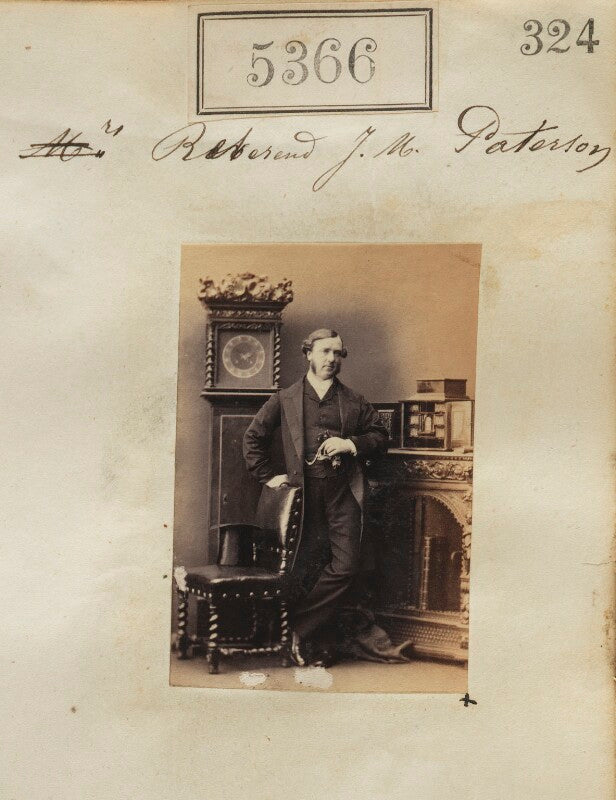 5366
324
Mrs Reverend J. M. Paterson